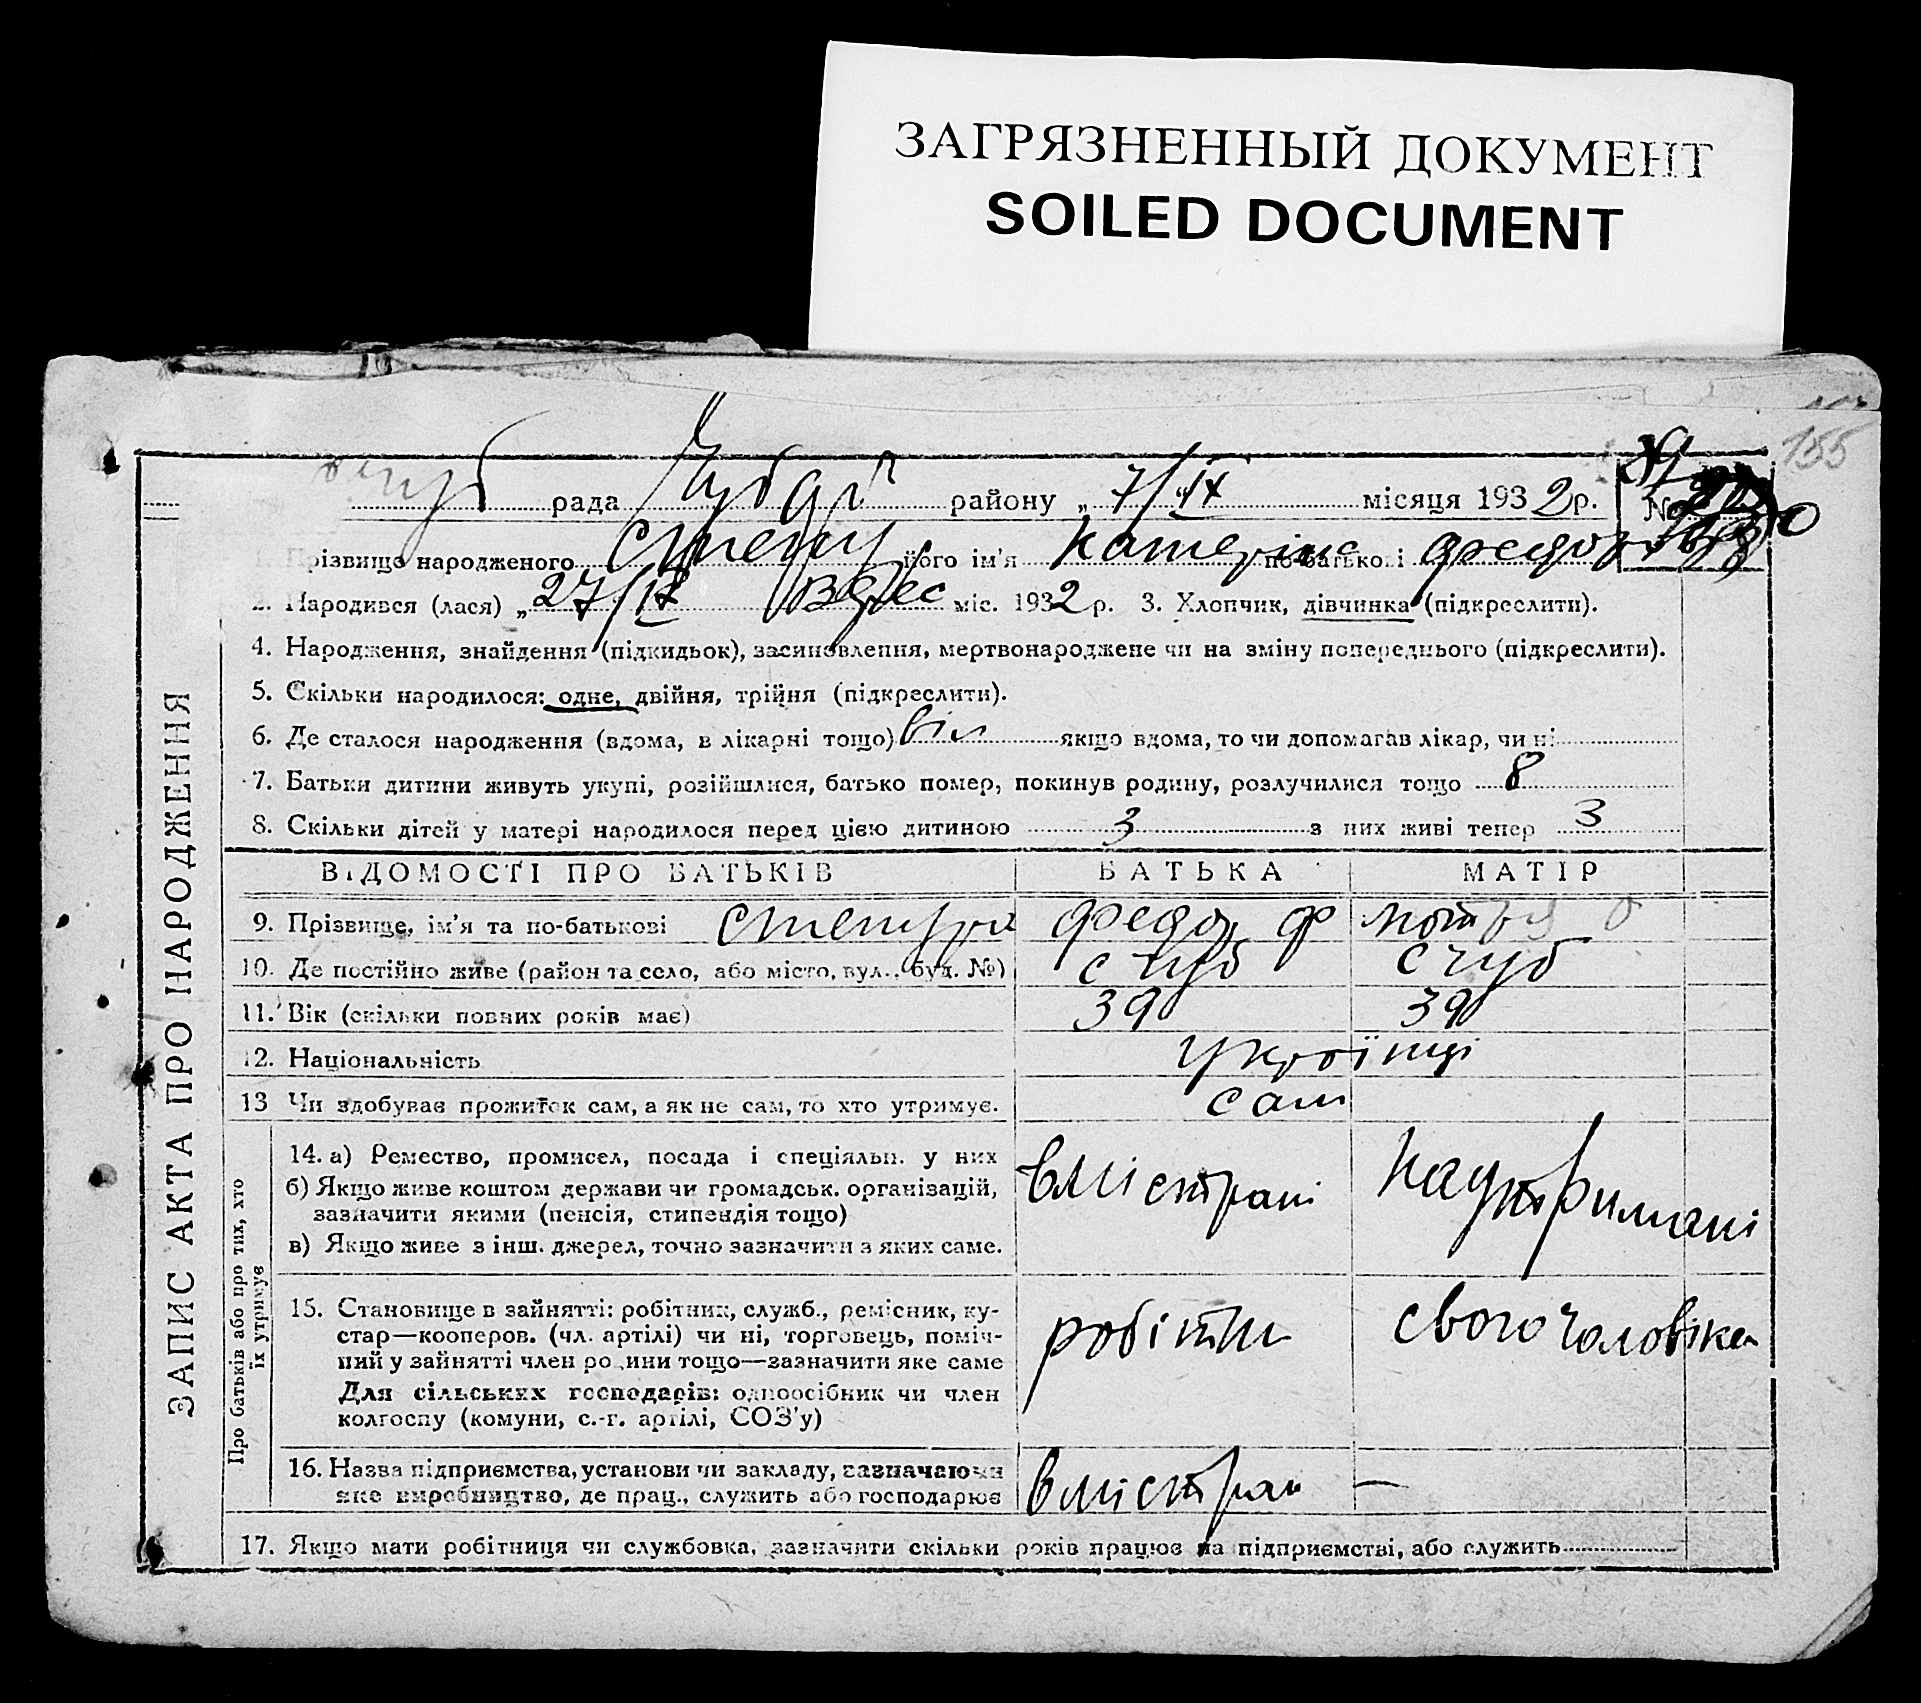 ЗАГРЯЗНЕННЫЙ ДОКУМЕНТ
SOILED DOCUMENT
155
рада Чубар району „7/IX місяця 1932 р. №
Прізвище народженого його ім'я Катеріна по-батькові
2. Народився (лася) „27/IX Верес міс. 1932 р. 3. Хлопчик, дівчинка (підкреслити).
4. Народження, знайдення (підкидьок), засиновлення, мертвонароджене чи на зміну попереднього (підкреслити).
5. Скільки народилося: одне, двійня, трійня (підкреслити).
6. Де сталося народження (вдома, в лікарні тощо) якщо вдома, то чи допомагав лікар, чи ні
7. Батьки дитини живуть укупі, розійшлися, батько помер, покинув родину, розлучилися тощо 8
8. Скільки дітей у матері народилося перед цією дитиною 3 з них живі тепер 3
ВІДОМОСТІ ПРО БАТЬКІВ БАТЬКА МАТІР
9. Прізвище, ім'я та по-батькові Федор Ф
10. Де постійно живе (район та село, або місто, вул., буд. №) с Чуб с Чуб
11. Вік (скільки повних років має) 39 39
12. Національність Українці
13 Чи здобуває прожиток сам, а як не сам, то хто утримує. сам
14. а) Ремество, промисел, посада і спеціяльн. у них
б) Якщо живе коштом держави чи громадськ. організацій,
зазначити якими (пенсія, стипендія тощо)
в) Якщо живе з інш. джерел, точно зазначити з яких саме.
вмістрані на утримані
15. Становище в зайнятті: робітник, служб., ремісник, ку-
стар—кооперов. (чл. артілі) чи ні, торговець, поміч-
ний у зайнятті член родини тощо—зазначити яке саме
Для сільських господарів: одноосібник чи член
колгоспу (комуни, с.-г. артілі, СОЗ'у)
робітн свого чоловіка
16. Назва підприємства, установи чи закладу, зазначаючи
яке виробництво, де прац., служить або господарює
вмістран —
17. Якщо мати робітниця чи службовка, зазначити скільки років працює на підприємстві, або служить
ЗАПИС АКТА ПРО НАРОДЖЕННЯ
Про батьків або про тих, хто
їх утримує